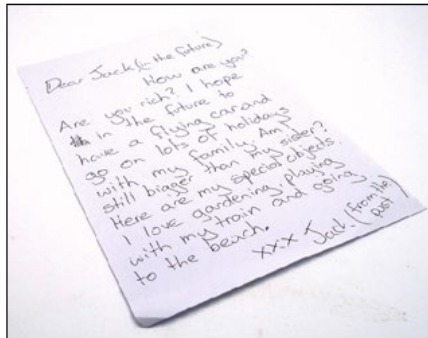 Dear Jack (in the future)
How are you?
Are you rich? I hope
in the future to
have a flying car and
go on lots of holidays
with my family. Am I
still biger than my sister?
Here are my special objects.
I love gardening, playing
with my train and going
to the beach.
xxx Jack. (from the
past)